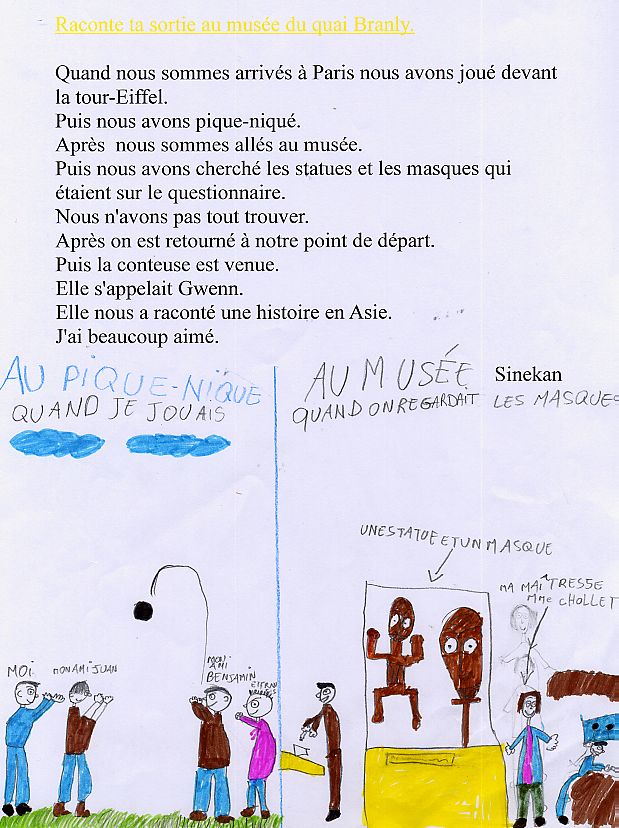 Raconte ta sortie au musée du quai Branly.
Quand nous sommes arrivés à Paris nous avons joué devant
la tour-Eiffel.
Puis nous avons pique-niqué.
Après nous sommes allés au musée.
Puis nous avons cherché les statues et les masques qui
étaient sur le questionnaire.
Nous n'avons pas tout trouver.
Après on est retourné à notre point de départ.
Puis la conteuse est venue.
Elle s'appelait Gwenn.
Elle nous a raconté une histoire en Asie.
J'ai beaucoup aimé.
Sinekan
AU PIQUE-NIQUE
QUAND JE JOUAIS
AU MUSÉE
QUAND ON REGARDAIT LES MASQUES
UNE STATUE ET UN MASQUE
MA MAÎTRESSE
Mme CHOLLET
MOI
MON AMI JUAN
MON
AMI
BENJAMIN